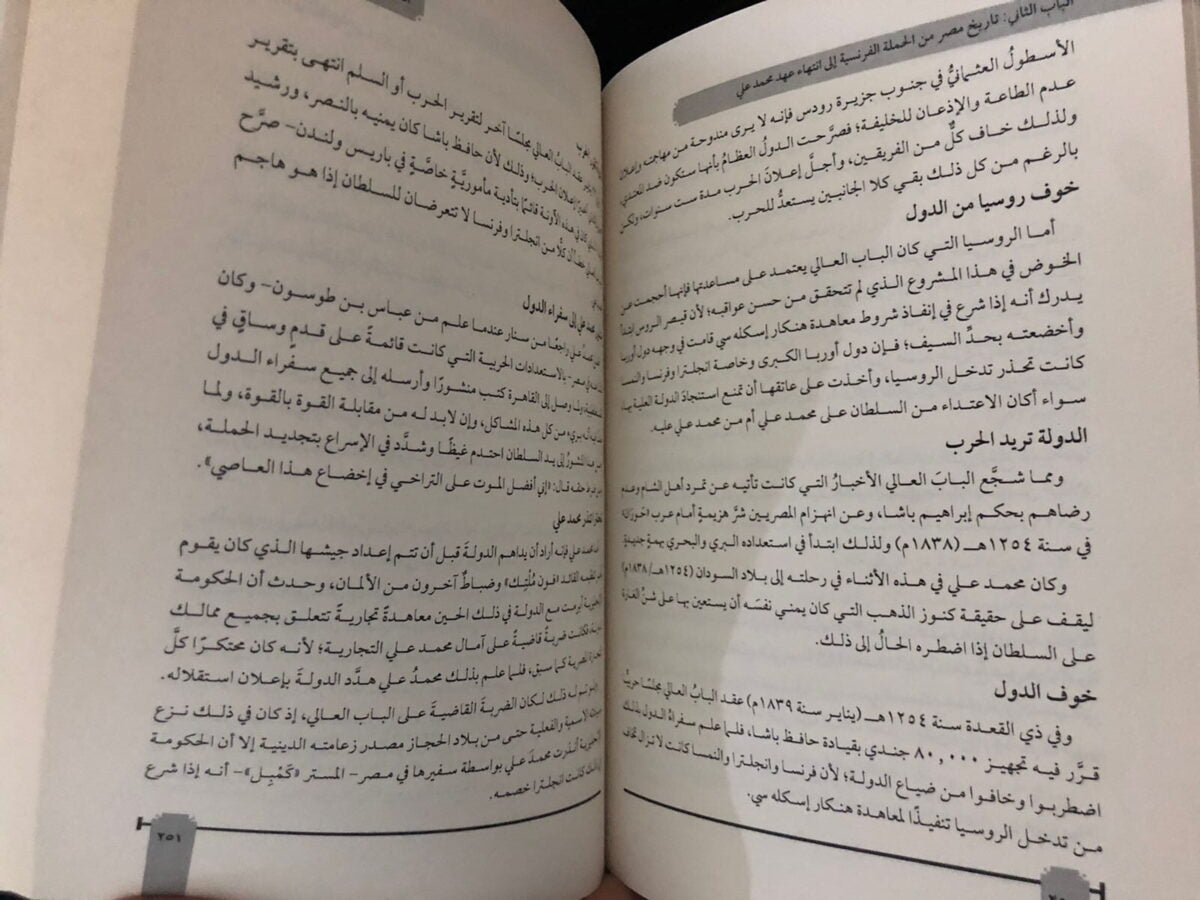 الباب الثاني: تاريخ مصر من الحملة الفرنسية إلى انتهاء عهد محمد علي
الأسطولُ العثمانيُّ في جنوب جزيرة رودس فإنه لا يرى مندوحة من مهاجمته وإعلان
عدم الطاعة والإذعان للخليفة؛ فصرَّحت الدولُ العظامُ بأنها ستكون ضد المعتدي،
ولذلك خاف كلٌّ من الفريقين، وأجلَ إعلانَ الحرب مدة ست سنوات، ولكن
بالرغم من كل ذلك بقي كلا الجانبين يستعدُّ للحرب.
خوف روسيا من الدول
أما الروسيا التي كان الباب العالي يعتمد على مساعدتها فإنها أحجمت عن
الخوض في هذا المشروع الذي لم تتحقق من حسن عواقبه؛ لأن قيصر الروس
يدرك أنه إذا شرع في إنفاذ شروط معاهدة هنكار إسكله سي قامت في وجهه دول أوربا
وأخضعته بحدِّ السيف؛ فإن دول أوربا الكبرى وخاصة انجلترا وفرنسا والنمسا
كانت تحذر تدخل الروسيا، وأخذت على عاتقها أن تمنع استنجادَ الدولة العلية بها
سواء أكان الاعتداء من السلطان على محمد علي أم من محمد علي عليه.
الدولة تريد الحرب
ومما شجَّع البابَ العالي الأخبارُ التي كانت تأتيه عن تمرد أهل الشام وعدم
رضاهم بحكم إبراهيم باشا، وعن انهزام المصريين شرَّ هزيمةٍ أمام عرب «حَوْرَان»
في سنة ١٢٥٤هـ (١٨٣٨م) ولذلك ابتدأ في استعداده البري والبحري بهمةٍ جديدةٍ
وكان محمد علي في هذه الأثناء في رحلته إلى بلاد السودان (١٢٥٤هـ/١٨٣٨م)
ليقف على حقيقة كنوز الذهب التي كان يمني نفسَه أن يستعين بها على شنِّ الغارة
على السلطان إذا اضطره الحالُ إلى ذلك.
خوف الدول
وفي ذي القعدة سنة ١٢٥٤هـ (يناير سنة ١٨٣٩م) عقد البابُ العالي مجلسًا حربيًّا
قرَّر فيه تجهيز ٨٠,٠٠٠ جندي بقيادة حافظ باشا، فلما علم سفراءُ الدول بذلك
اضطربوا وخافوا من ضياع الدولة؛ لأن فرنسا وانجلترا والنمسا كانت لا تزال تخاف
من تدخل الروسيا تنفيذًا لمعاهدة هنكار إسكله سي.
عقد البابُ العالي مجلسًا آخر لتقرير الحرب أو السلم انتهى بتقرير
إعلان الحرب؛ وذلك لأن حافظ باشا كان يمنيه بالنصر، ورشيد
في هذه الآونة قائمًا بتأدية مأموريَّةٍ خاصَّةٍ في باريس ولندن- صرَّح
كلًّا من انجلترا وفرنسا لا تتعرضان للسلطان إذا هو هاجم
محمد علي إلى سفراء الدول
راجعًا من سنار عندما علم من عباس بن طوسون- وكان
بالاستعدادات الحربية التي كانت قائمةً على قدمٍ وساقٍ في
وصل إلى القاهرة كتب منشورًا وأرسله إلى جميع سفراء الدول
بريء من كل هذه المشاكل، وإن لابد له من مقابلة القوة بالقوة، ولما
المنشورُ إلى يد السلطان احتدم غيظًا وشدَّد في الإسراع بتجديد الحملة،
قال: «إني أفضل الموت على التراخي في إخضاع هذا العاصي».
محمد علي
محمد علي فإنه أراد أن يداهم الدولةَ قبل أن تتم إعداد جيشها الذي كان يقوم
القائد «فون مُلْتِك» وضباطٌ آخرون من الألمان، وحدث أن الحكومة
أبرمت مع الدولة في ذلك الحين معاهدةً تجاريةً تتعلق بجميع ممالك
فكانت ضربةً قاضيةً على آمال محمد علي التجارية؛ لأنه كان محتكرًا كلَّ
كما سبق، فلما علم بذلك محمدُ علي هدَّد الدولةَ بإعلان استقلاله.
ذلك لكان الضربةَ القاضيةَ على الباب العالي، إذ كان في ذلك نزع
الاسمية والفعلية حتى من بلاد الحجاز مصدر زعامته الدينية إلا أن الحكومة
أنذرت محمدَ علي بواسطة سفيرها في مصر- المستر «كَمْبِل»- أنه إذا شرع
كانت انجلترا خصمه.
٢٥١